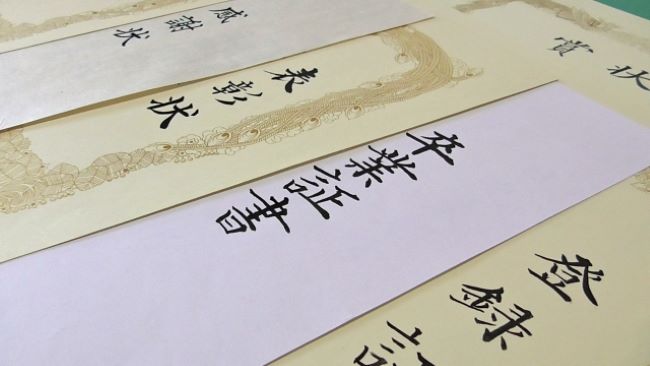 感謝状
表彰状
賞状
卒業証書
登録証